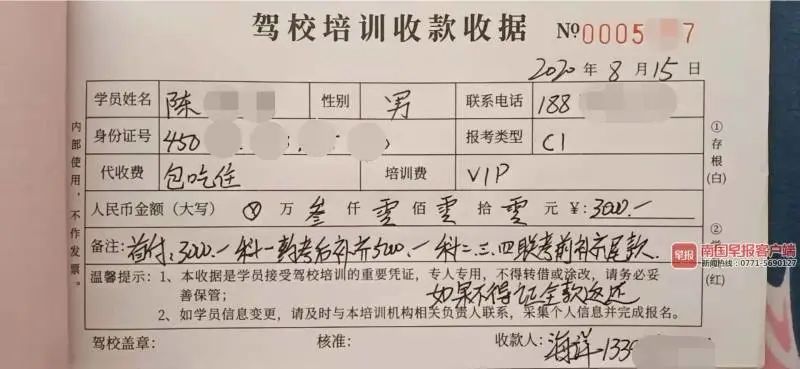 驾校培训收款收据 № 0005 7
2020 年 8 月 15 日
学员姓名 陈 性别 男 联系电话 188
身份证号 450 报考类型 C1
代收费 包吃住 培训费 VIP
人民币金额（大写） ⊗ 万 叁 仟 零 佰 零 拾 零 元 ¥: 3000.-
备注: 首付: 3000.- 科一考后补齐5000.- 科二.三.四联考前补齐尾款.
温馨提示: 1、本收据是学员接受驾校培训的重要凭证，专人专用，不得转借或涂改，请务必妥
善保管;
如果不得证全款返还
2、如学员信息变更，请及时与本培训机构相关负责人联系，采集个人信息并完成报名。
驾校盖章: 核准: 收款人: 海洋-1339
内部使用，不作发票。
①存根(白)
②
(红)
早报 南国早报客户端
新闻热线: 0771-5690127